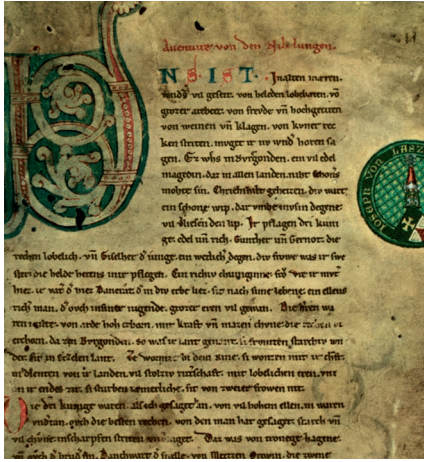 Auenture von den Nibelungen.
VNS IST. Jnalten mæren.
wnds vil geseit. von heleden lobebæren. võ
grozer arebeit. von frevde vñ hochgeciten
von weinen vñ klagen. von kvner rec
ken striten. mvget ir nv wnd horen sa
gen. Ez whs in Bvrgonden. ein vil edel
magedin. daz in allen landen. niht schoners
mohte sin. Chriemhilt geheizen. div wart
ein schone wip. dar vmbe mvsin degene
vil verliesen den lip. Jr pflagen dri kuni
ge. edel vñ rich. Gunther vñ Gernot. die
rechen lobelich. vñ Giselher d iunge. ein wetlich degen. div frowe was ir swe
ster die helde hetens inir pflegen. Ein richiv chuniginne. frŏ vte ir mvt
hiez. ir vat d hiez Dancrat. d in div erbe liez. sit nach sime lebene. ein ellens
rich man. d ovch insiner iugende. grozer eren vil gewan. Die hren wa
ren milte. von arde hoh erborn. mit kraft vñ mazen chvne. die rechen vz
erchorn. da zen Bvrgonden. so was ir lant genant. si frvmten starchiv wn
der. sit in Ezelen lant. Ze Wormez bi dem Rine. si wonten mit ir chraft.
in dienten von ir landen. vil stolziv ritterschaft. mit lobelichen eren. vnz
an ir endes zit. si sturben iæmerliche. sit von zweier frowen nit.
Die dri kunige waren. als ich gesaget han. von vil hohem ellen. in waren
vndertan. ovch die besten rechen. von den man hat gesaget. starch vñ
vil chvne. in scharpfen striten vnverzaget. Daz was von Tronege Hagene.
vñ ovch d brud sin. Danchwart d snelle. von Metzen Ortwin. die zwene
JOSEPH VON LASZ